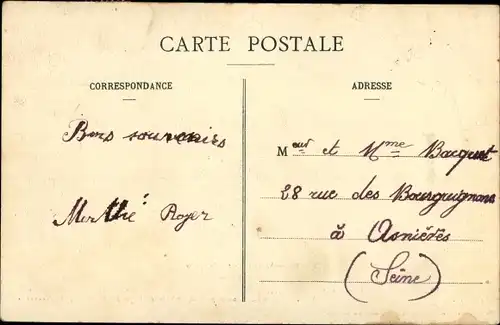 CARTE POSTALE
CORRESPONDANCE
Bons souvenirs
Roger
ADRESSE
Meur et Mme Bacquet
28 rue des Bourguignons
à Asnières
(Seine)